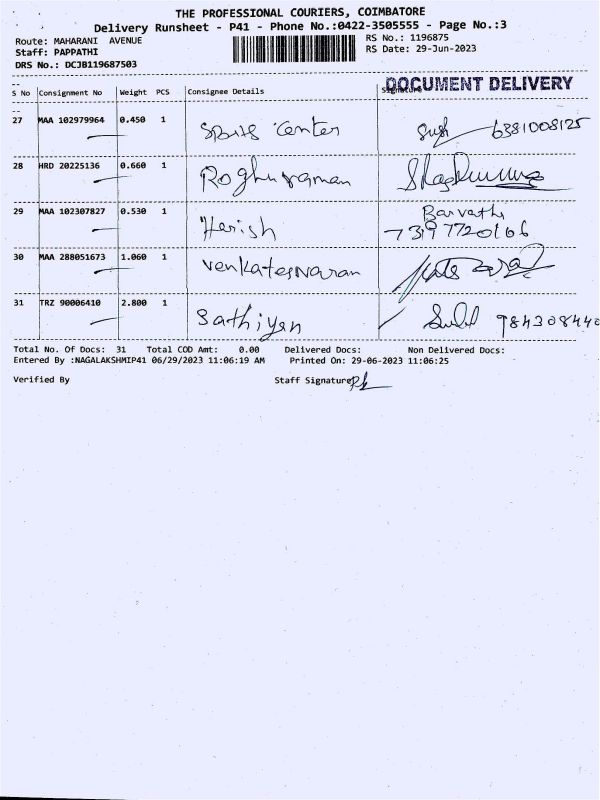 THE PROFESSIONAL COURIERS, COIMBATORE
Delivery Runsheet - P41 - Phone No.:0422-3505555 - Page No.:3
Route: MAHARANI AVENUE
RS No.: 1196875
Staff: PAPPATHI
RS Date: 29-Jun-2023
DRS No.: DCJB119687503
DOCUMENT DELIVERY
S No Consignment No Weight PCS Consignee Details Signature
27 MAA 102979964 0.450 1 Sports Center 6381008125
28 HRD 20225136 0.660 1 Roghuraman
29 MAA 102307827 0.530 1 Harish Barvathi
7397720166
30 MAA 288051673 1.060 1 Venkateswaran
31 TRZ 90006410 2.800 1 Sathiyan 984308440
Total No. Of Docs: 31 Total COD Amt: 0.00 Delivered Docs: Non Delivered Docs:
Entered By :NAGALAKSHMIP41 06/29/2023 11:06:19 AM Printed On: 29-06-2023 11:06:25
Verified By Staff Signature